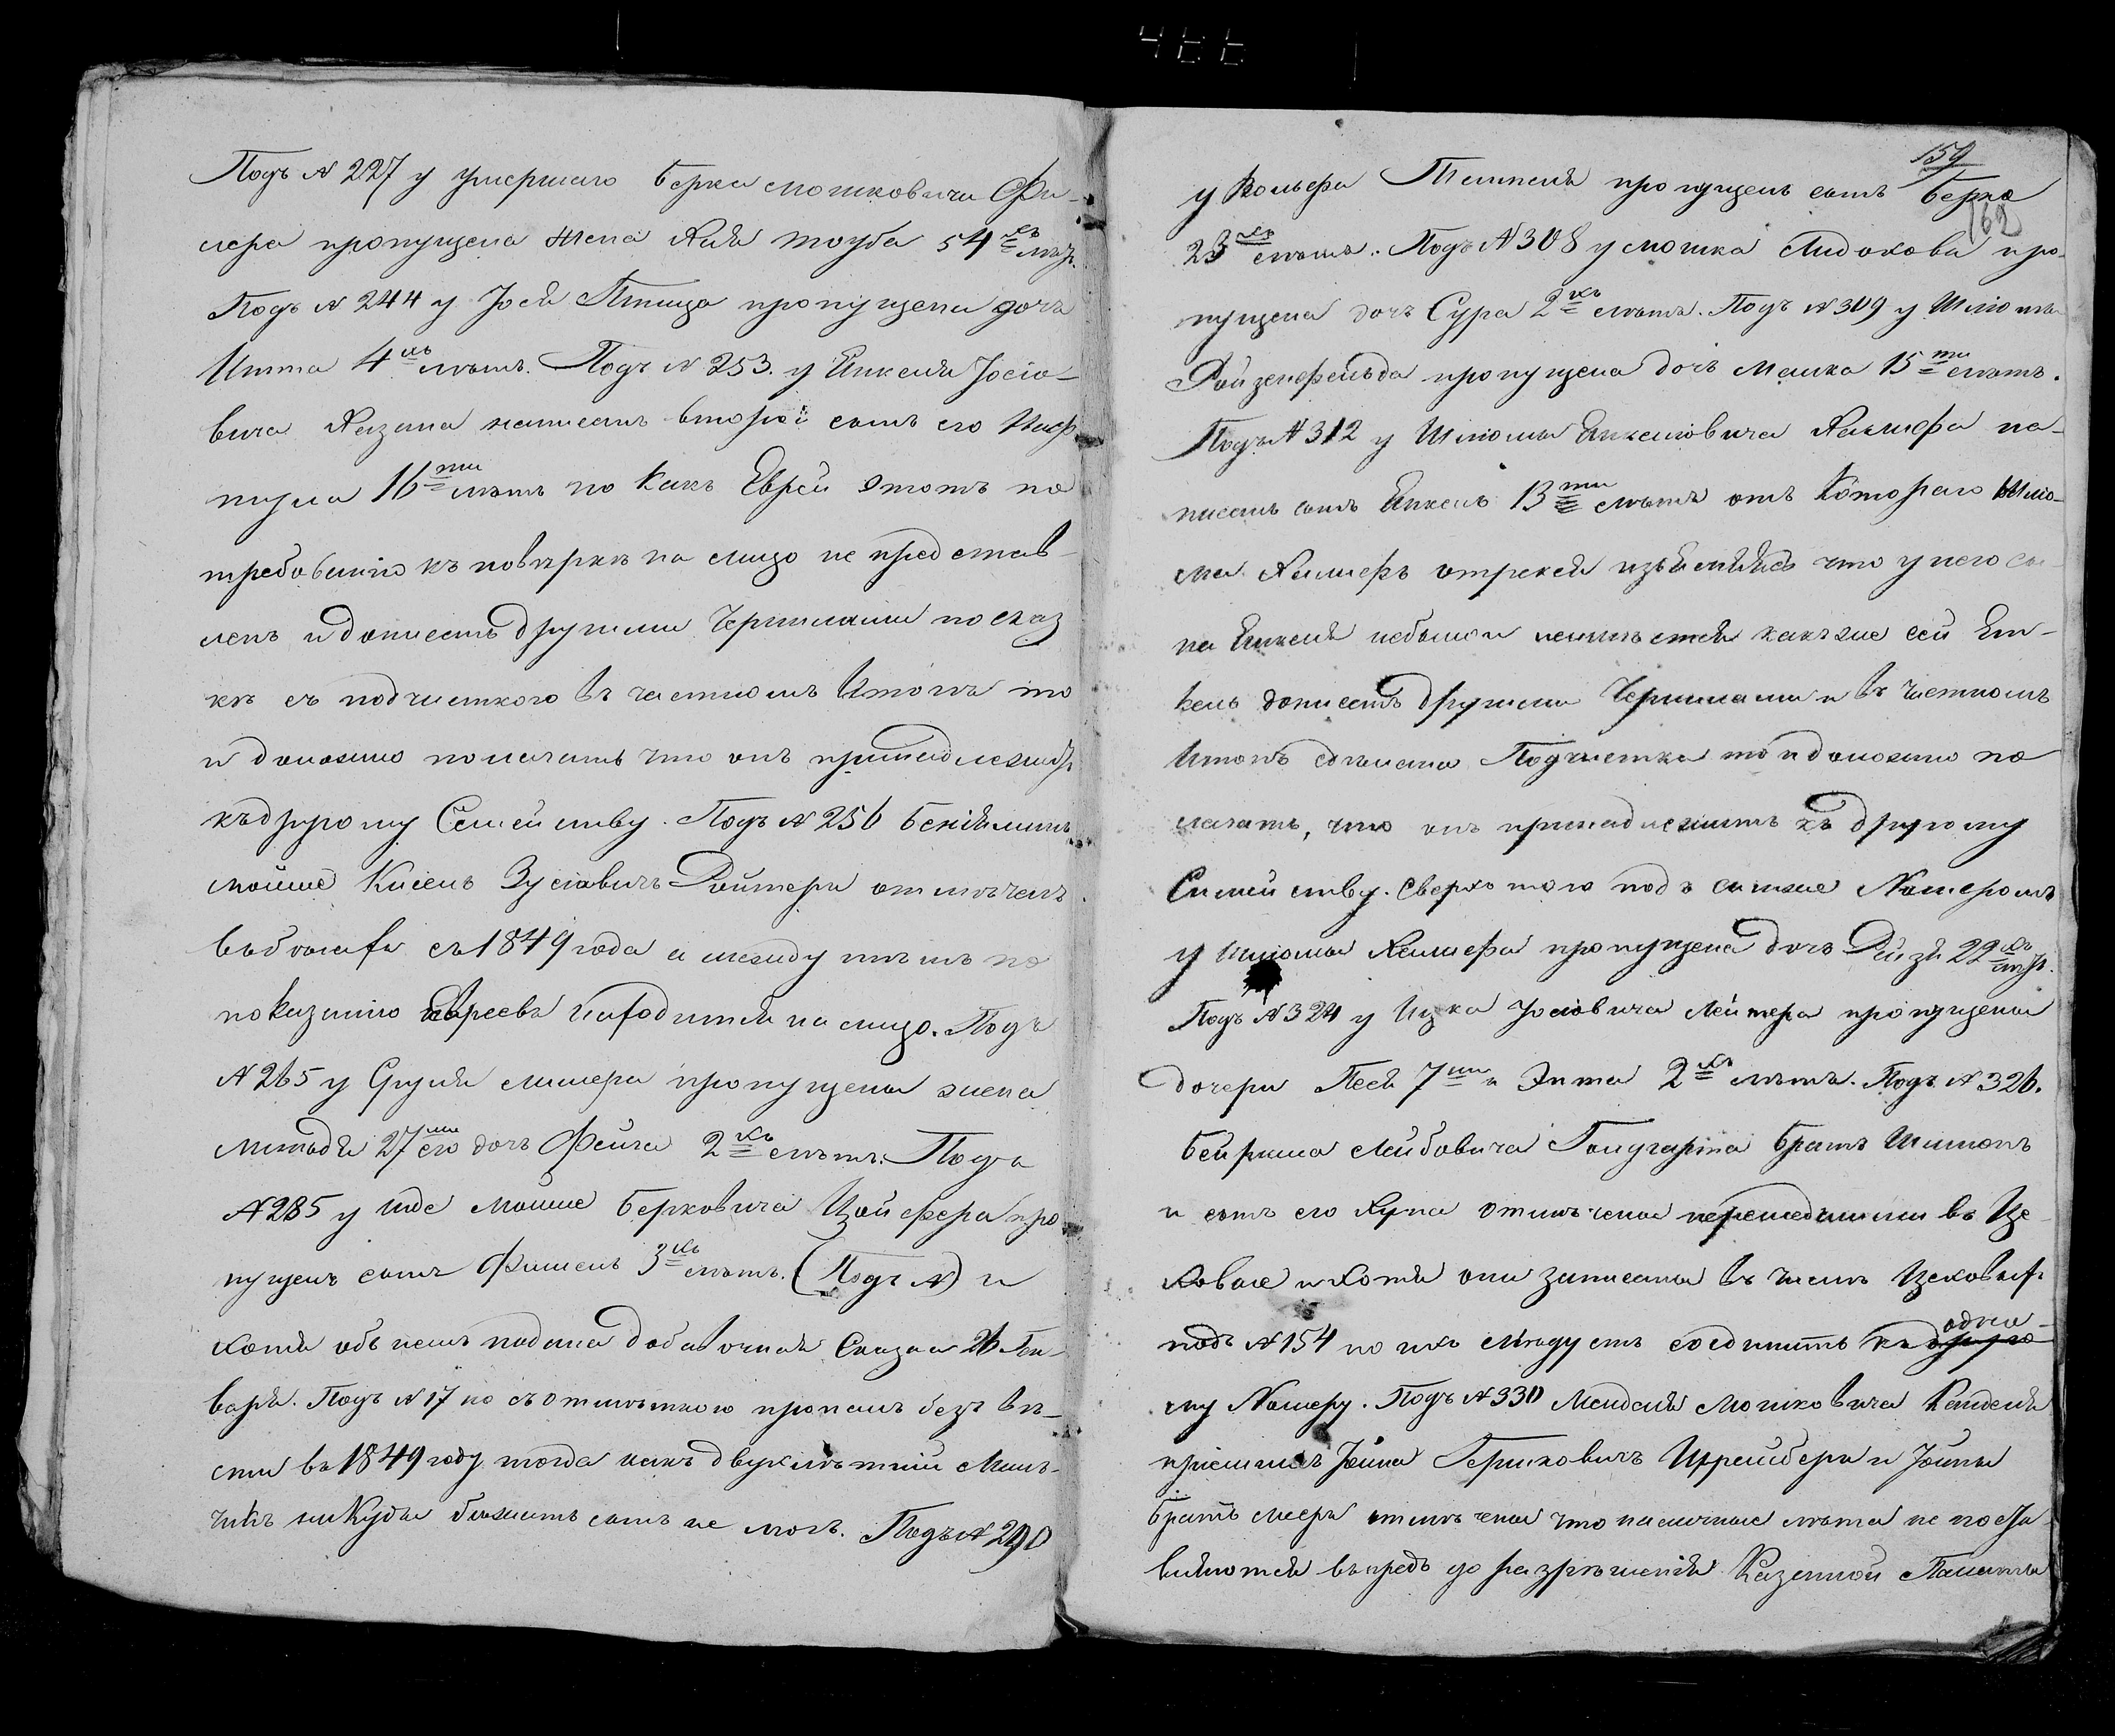 Подъ № 227 у умершаго Берка Мошковича Фи-
лера пропущена жена Хая Тоуба 54хъ лѣтъ.
Подъ № 244 у Іося Птица пропущена дочь
Итта 4хъ лѣтъ. Подъ № 253. у Янкеля Іосіо-
вича Хазана написанъ второй сынъ его Наф-
тула 16ти лѣтъ но какъ Еврей этотъ по
требованію къ повѣркѣ на лицо не представ-
ленъ и дописанъ другими чернилами по сказ
кѣ съ подчисткою въ частномъ Итогѣ то
и должно полагать что онъ принадлежитъ
къ другому Семейству. Подъ № 256 Беніяминъ
Мойше Кисель Зусіовичъ Ройтеръ отмѣченъ
въ бѣгахъ съ 1849 года а между тѣмъ по
показанію Евреевъ находится на лицо. Подъ
№ 265 у Сруля Лимера пропущены жена
27ми его дочь Фейга 2хъ лѣтъ. Подъ
№ 285 у Иде Мойше Берковича Цойфера про
пущенъ сынъ Фишель 3хъ лѣтъ. (Подъ №) и
хотя объ немъ подана добавочная Сказка 26 Ген-
варя. Подъ № 17 но съ отмѣткою пропалъ безъ вѣ-
сти въ 1849 году тогда какъ двухлѣтній Маль-
чикъ никуды бѣжать самъ не могъ. Подъ № 290
159
162
у Вольфа Темпеля пропущенъ сынъ Берко
23хъ лѣтъ. Подъ № 308 у Мошка Лидохова про-
пущена дочь Сура 2хъ лѣтъ. Подъ № 309 у Шліомы
Ройзенфельда пропущена дочь Малка 15ти лѣтъ.
Подъ № 312 у Шліомы Янкеліовича Хелмера на-
писанъ сынъ Янкель 13ти лѣтъ отъ котораго Шліо-
ма Хелмеръ отрекся изъяснялся что у него сы-
на Янкеля небыло и неимѣется какъ же сей Ян-
кель дописанъ другими чернилами и въ частномъ
Итогѣ сдѣлана Подчистка то и должно по
лагать, что онъ принадлежитъ къ другому
Семейству. Сверхъ того подъ симже Номеромъ
у Шліомы Хелмера пропущена дочь Рейзя 22хъ лѣтъ.
Подъ № 324 у Ицка Іосіовича Лейтера пропущены
дочери Песя 7ми и Энта 2хъ лѣтъ. Подъ № 326.
Бейриша Лейбовича Гоизгарта братъ Шимонъ
и сынъ его Хуна отмѣчены перешедшими въ Це
ховые и хотя они записаны въ числѣ Цеховыхъ
подъ № 154 но ихъ слѣдуетъ соединить къ друго одно-
му Номеру. Подъ № 330 Менделя Мошковича Хенделя
пріемышъ Іойна Гершковичъ Цррейсберъ и Іойны
братъ Мееръ отмѣчены что наличные лѣта не поста
вляются впредъ до разрѣшенія Казенной Палаты